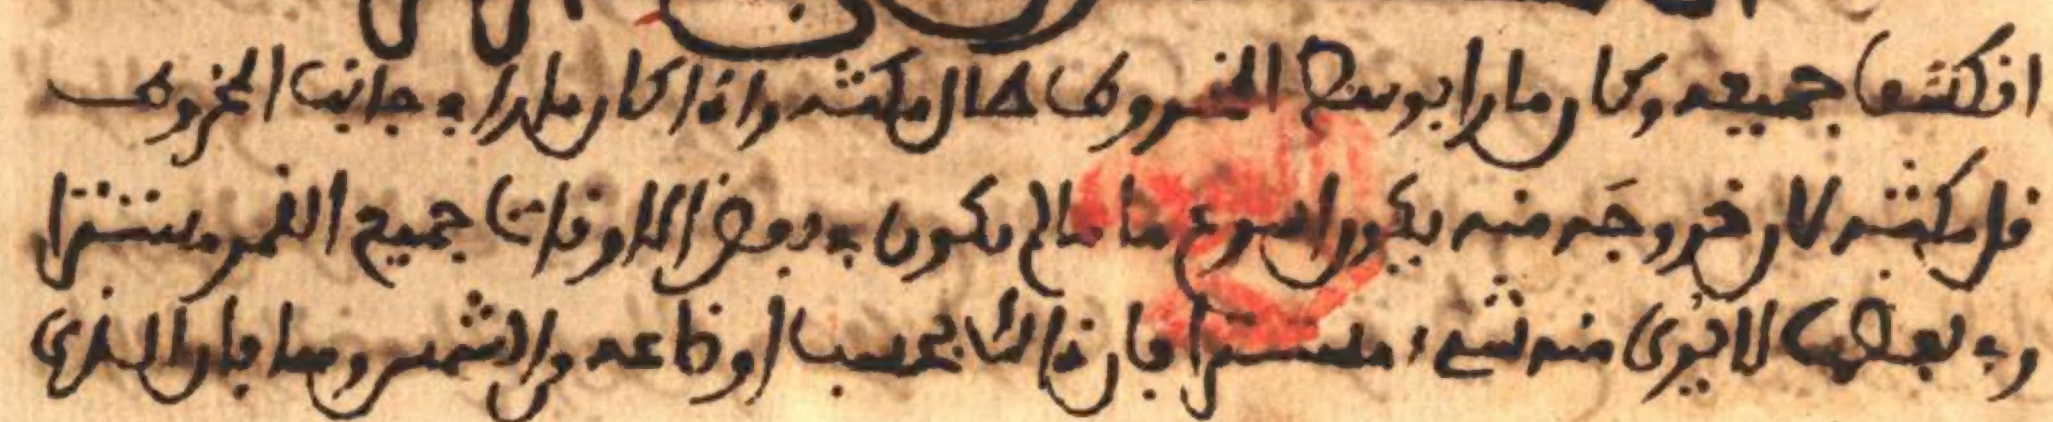 انكشف جميعه وكان مارا بوسط المخروط طال مكثه وان كان مارا بجانب المخروط
قل مكثه لان خروجه منه يكون اسرع ما يكون وفي بعض الاوقات جميع القمر مستترا
وفي بعضها لا يرى منه شيء مستترا فان ذلك بحسب اوضاعه من الشمس ومنا فان الذي